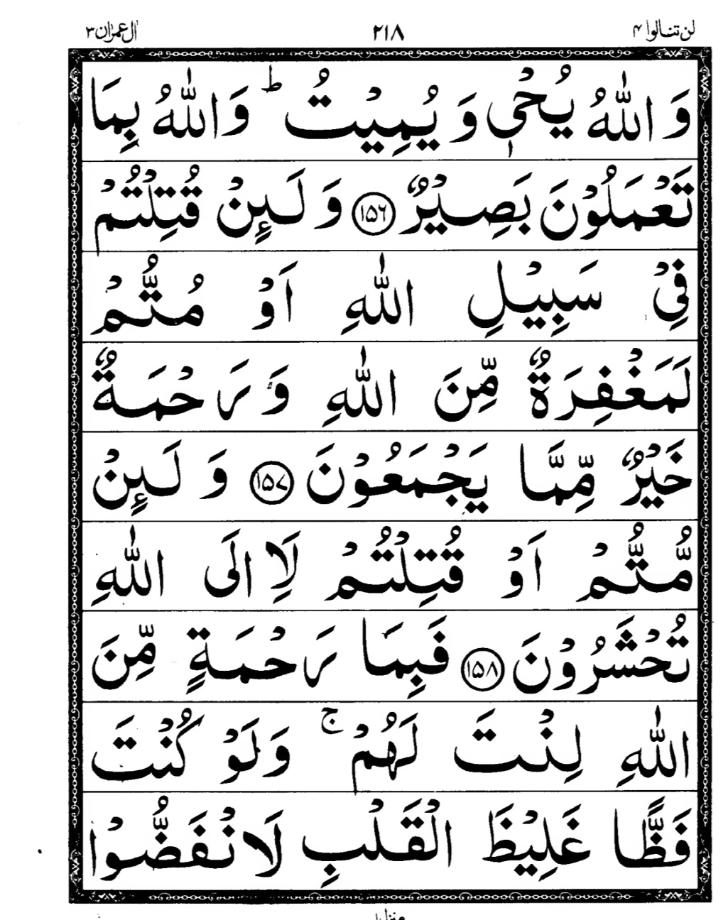 لن تنالوا ۴ ۲۱۸ ال عمران ۳
وَ اللّٰهُ يُحْيٖ وَ يُمِيْتُ ؕ وَاللّٰهُ بِمَا
تَعْمَلُوْنَ بَصِيْرٌ ﴿۱۵۶﴾ وَ لَىِٕنْ قُتِلْتُمْ
فِيْ سَبِيْلِ اللّٰهِ اَوْ مُتُّمْ
لَمَغْفِرَةٌ مِّنَ اللّٰهِ وَ رَحْمَةٌ
خَيْرٌ مِّمَّا يَجْمَعُوْنَ ﴿۱۵۷﴾ وَ لَىِٕنْ
مُّتُّمْ اَوْ قُتِلْتُمْ لَاۡاِلَى اللّٰهِ
تُحْشَرُوْنَ ﴿۱۵۸﴾ فَبِمَا رَحْمَةٍ مِّنَ
اللّٰهِ لِنْتَ لَهُمْ ۚ وَلَوْ كُنْتَ
فَظًّا غَلِيْظَ الْقَلْبِ لَانْفَضُّوْا